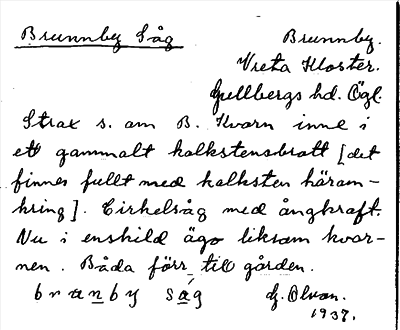 Brunnby Såg
Brunnby.
Vreta Kloster.
Gullbergs hd. Ögl.
Strax s. om B. Kvarn inne i
ett gammalt kalkstensbrott [det
finnes fullt med kalksten härom-
kring]. Cirkelsåg med ångkraft.
Nu i enskild ägo liksom kvar-
nen. Båda förr till gården.
brunnby såg
G. Olson.
1937.